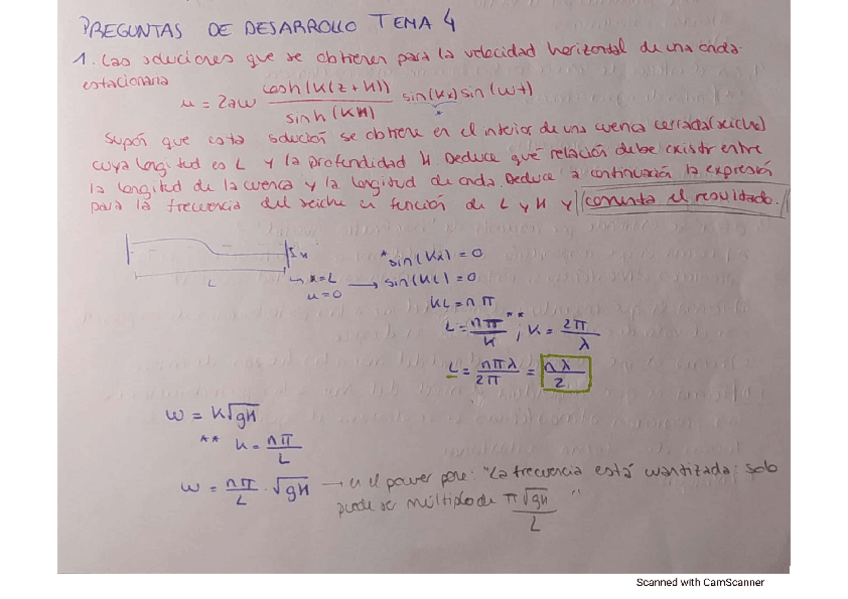 PREGUNTAS DE DESARROLLO TEMA 4
1. Las soluciones que se obtienen para la velocidad horizontal de una onda
estacionaria
u = 2aw cosh(K(z+H)) / sinh(KH) sin(Kx) sin(wt)
*
Supón que esta solución se obtiene en el interior de una cuenca cerrada (seiche)
cuya longitud es L y la profundidad H. Deduce qué relación debe existir entre
la longitud de la cuenca y la longitud de onda. Deduce a continuación la expresión
para la frecuencia del seiche en función de L y H y comenta el resultado.
H
L
x=L
u=0
* sin(Kx) = 0
→ sin(KL) = 0
KL = n π
L = nπ / K ** ; K = 2π / λ
L = nπλ / 2π = nλ / 2
w = K√gH
** K = nπ / L
w = nπ / L · √gH → en el power pone: "La frecuencia está cuantizada: solo
puede ser múltiplo de π√gH / L "
Scanned with CamScanner